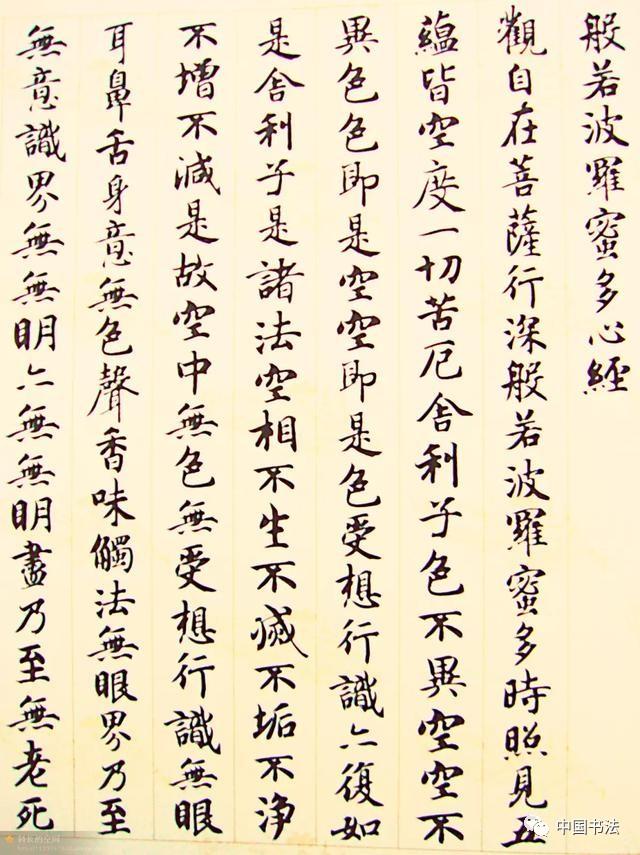 般若波羅蜜多心經
觀自在菩薩行深般若波羅蜜多時照見五
蘊皆空度一切苦厄舍利子色不異空空不
異色色即是空空即是色受想行識亦復如
是舍利子是諸法空相不生不滅不垢不淨
不增不減是故空中無色無受想行識無眼
耳鼻舌身意無色聲香味觸法無眼界乃至
無意識界無無明亦無無明盡乃至無老死
中国书法